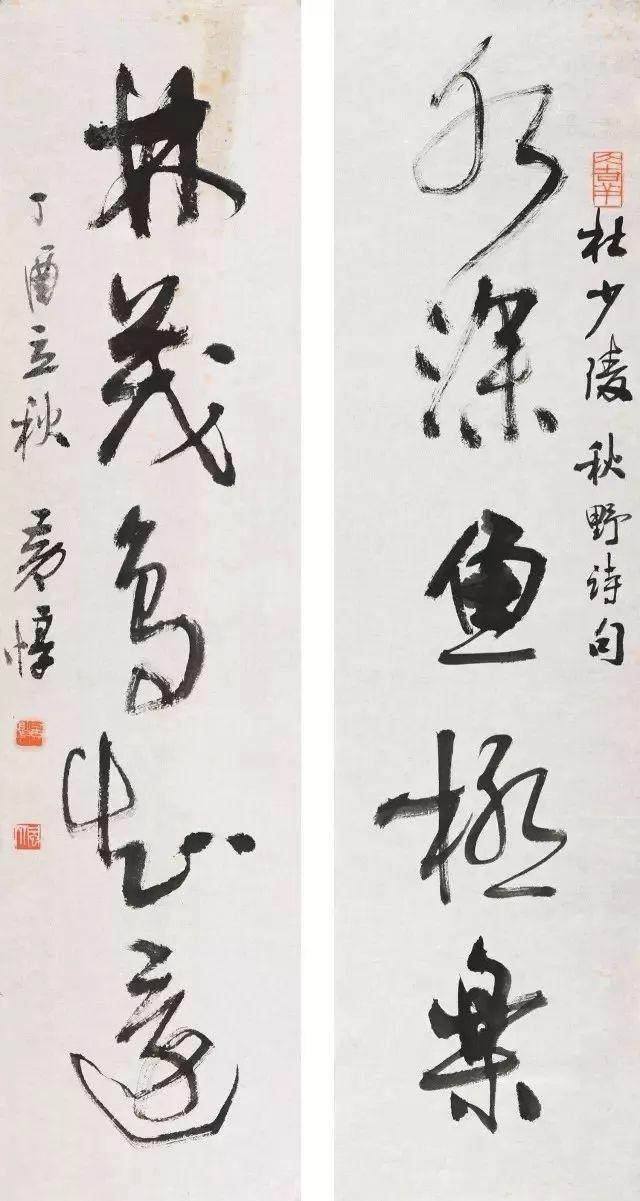 杜少陵秋野诗句
水深鱼極樂
林茂鳥知
丁酉立秋